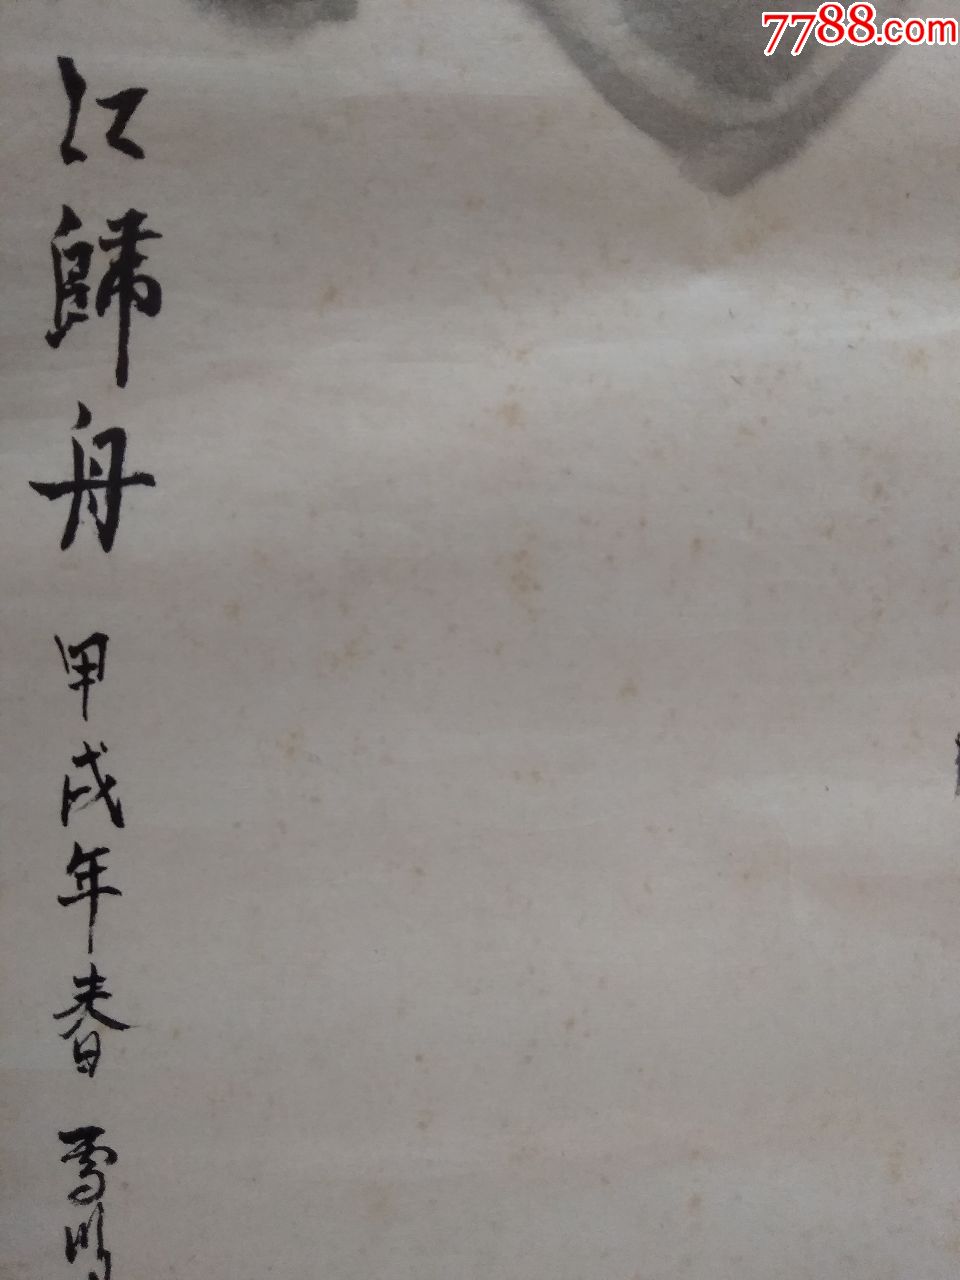 7788.com
江歸舟 甲戌年春 雪明